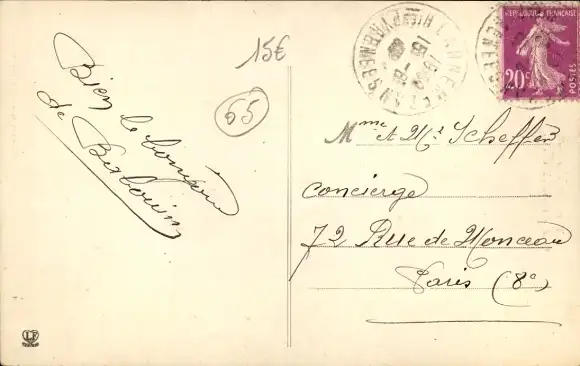 15€
65
Bien le bonjour
de
LANNEMEZAN
HTES PYRENEES
REPUBLIQUE FRANÇAISE
20c
POSTES
Mme et Mr Scheffer
concierge
72 Rue de Monceau
Paris (8e)
LF